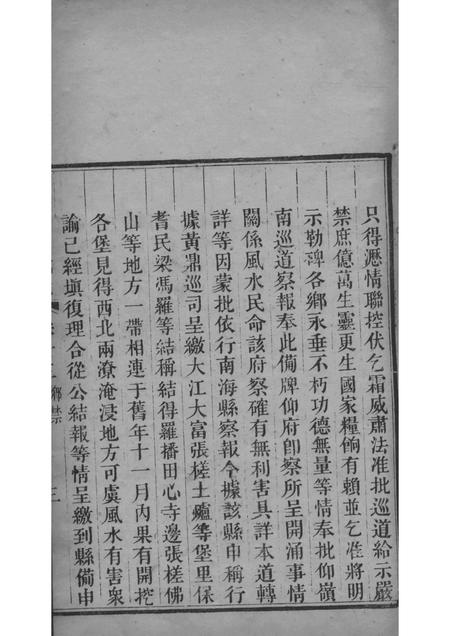 只得瀝情聯控伏乞霜威肅法准批巡道給示嚴
禁庶億萬生靈更生國家糧餉有賴並乞准將明
示勒碑各鄉永垂不朽功德無量等情奉批仰嶺
南巡道察報奉此備牌仰府卽察所呈開涌事情
關係風水民命該府察確有無利害具詳本道轉
詳等因蒙批依行南海縣察報今據該縣申稱行
據黃鼎巡司呈繳大江大富張槎土爐等堡里保
耆民梁馮羅等結稱結得羅播田心寺邊張槎佛
山等地方一帶相連于舊年十一月內果有開挖
各堡見得西北兩潦淹浸地方可虞風水有害衆
論已經塡復理合從公結報等情呈繳到縣備申
鄉禁
三